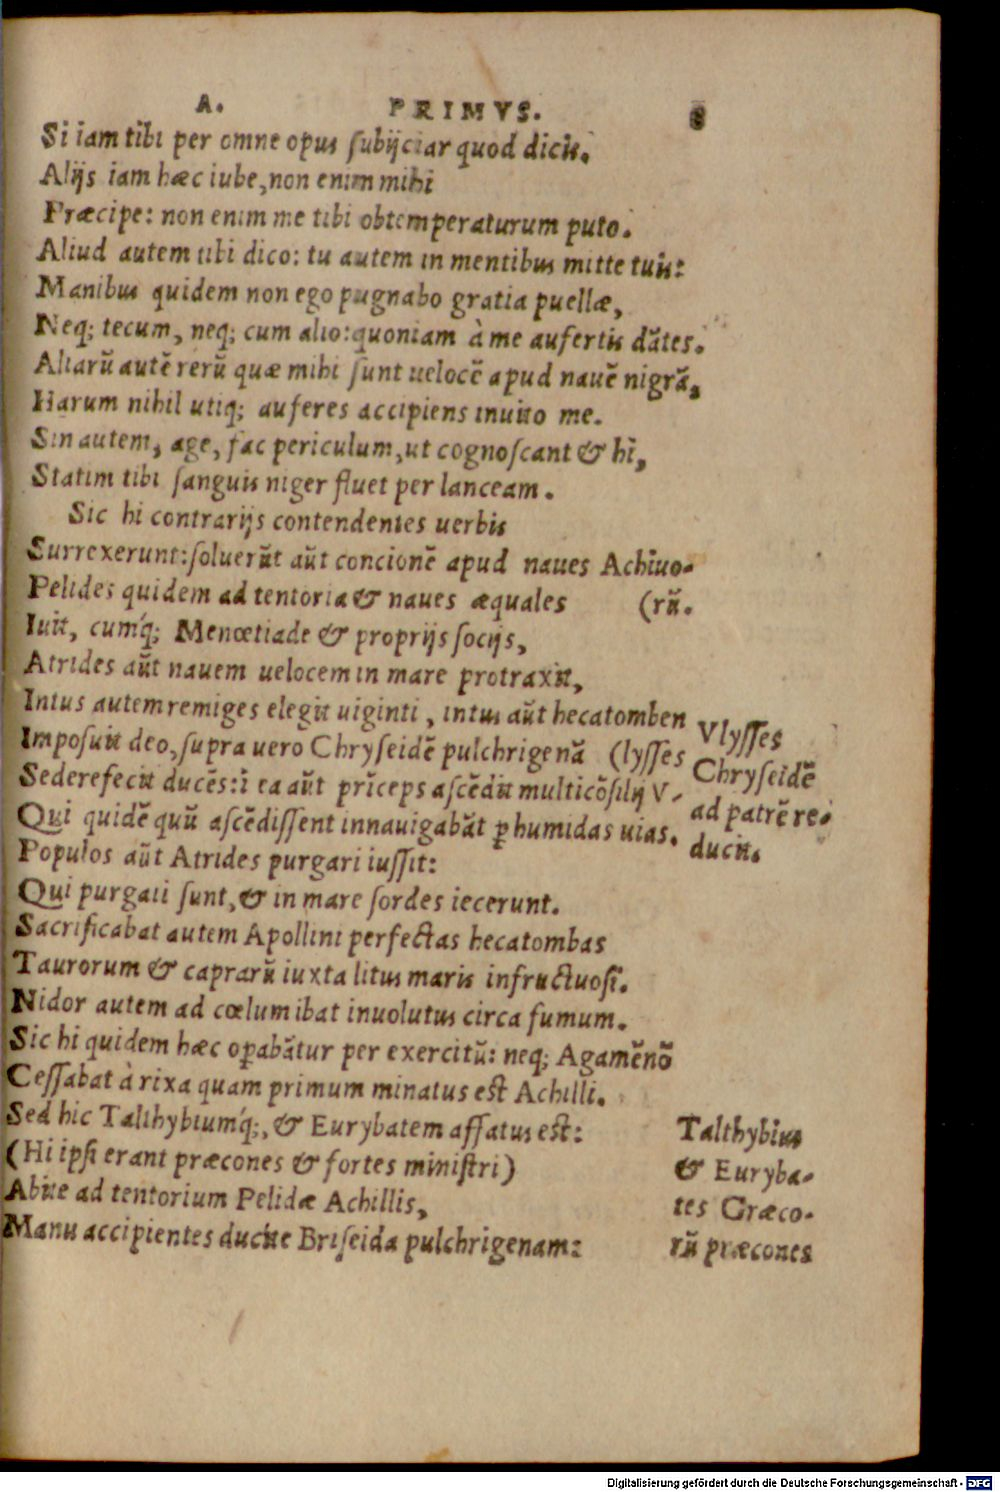 A. PRIMVS. 8
Si iam tibi per omne opus ſubijciar quod dicis.
Alijs iam hæc iube, non enim mihi
Præcipe: non enim me tibi obtemperaturum puto.
Aliud autem tibi dico: tu autem in mentibus mitte tuis:
Manibus quidem non ego pugnabo gratia puellæ,
Neq; tecum, neq; cum alio: quoniam à me aufertis dãtes.
Aliarũ autẽ rerũ quæ mihi ſunt uelocẽ apud nauẽ nigrã,
Harum nihil utiq; auferes accipiens inuito me.
Sin autem, age, fac periculum, ut cognoſcant & hi,
Statim tibi ſanguis niger fluet per lanceam.
Sic hi contrarijs contendentes uerbis
Surrexerunt: ſoluerũt aũt concionẽ apud naues Achiuo-
Pelides quidem ad tentoria & naues æquales (rũ.
Iuit, cumq́; Menœtiade & proprijs ſocijs,
Atrides aũt nauem uelocem in mare protraxit,
Intus autem remiges elegit uiginti, intus aũt hecatomben
Impoſuit deo, ſupra uero Chryſeidẽ pulchrigenã (lyſſes
Sederefecit ducẽs: ĩ ea aũt prĩceps aſcẽdit multicõſilij V-
Qui quidẽ quũ aſcẽdiſſent innauigabãt ꝑ humidas uias.
Populos aũt Atrides purgari iuſſit:
Qui purgati ſunt, & in mare ſordes iecerunt.
Sacrificabat autem Apollini perfectas hecatombas
Taurorum & caprarũ iuxta litus maris infructuoſi.
Nidor autem ad cœlum ibat inuolutus circa fumum.
Sic hi quidem hæc oꝑabãtur per exercitũ: neq; Agamẽnõ
Ceſſabat à rixa quam primum minatus eſt Achilli.
Sed hic Talthybiumq́;, & Eurybatem affatus eſt:
(Hi ipſi erant præcones & fortes miniſtri)
Abite ad tentorium Pelidæ Achillis,
Manu accipientes ducite Briſeida pulchrigenam:
Vlyſſes
Chryſeidẽ
ad patrẽ re-
ducit.
Talthybius
& Euryba-
tes Græco-
rũ præcones
Digitalisierung gefördert durch die Deutsche Forschungsgemeinschaft - DFG